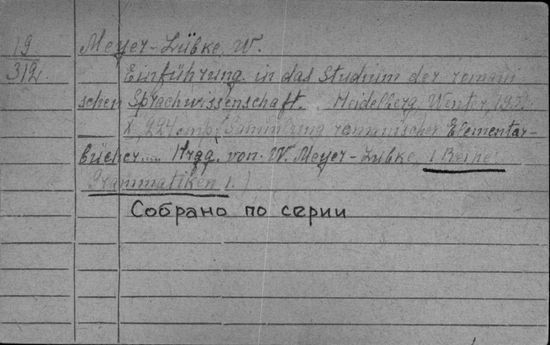 19 Meyer-Lübke, W.
312. Einführung in das Studium der romani
schen Sprachwissenschaft. Heidelberg, Winter,
X, 224 (Sammlung romanischer Elementar-
bücher.... Hrgg. von W. Meyer-Lubke 1 Reihe:
Grammatiken 1.)
Собрано по серии